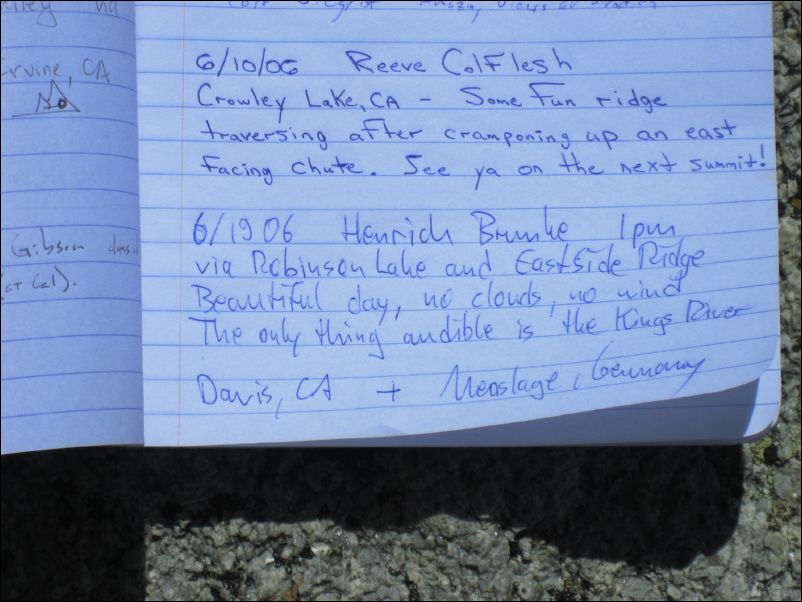 Irvine, CA
Gibson
(at Cal).
6/10/06 Reeve ColFlesh
Crowley Lake, CA - Some Fun ridge
traversing after cramponing up an east
facing chute. See ya on the next summit!
6/19 06 Henrich Brunke 1pm
via Robinson Lake and Eastside Ridge
Beautiful day, no clouds, no wind
The only thing audible is the Kings River
Davis, CA + Menslage, Germany